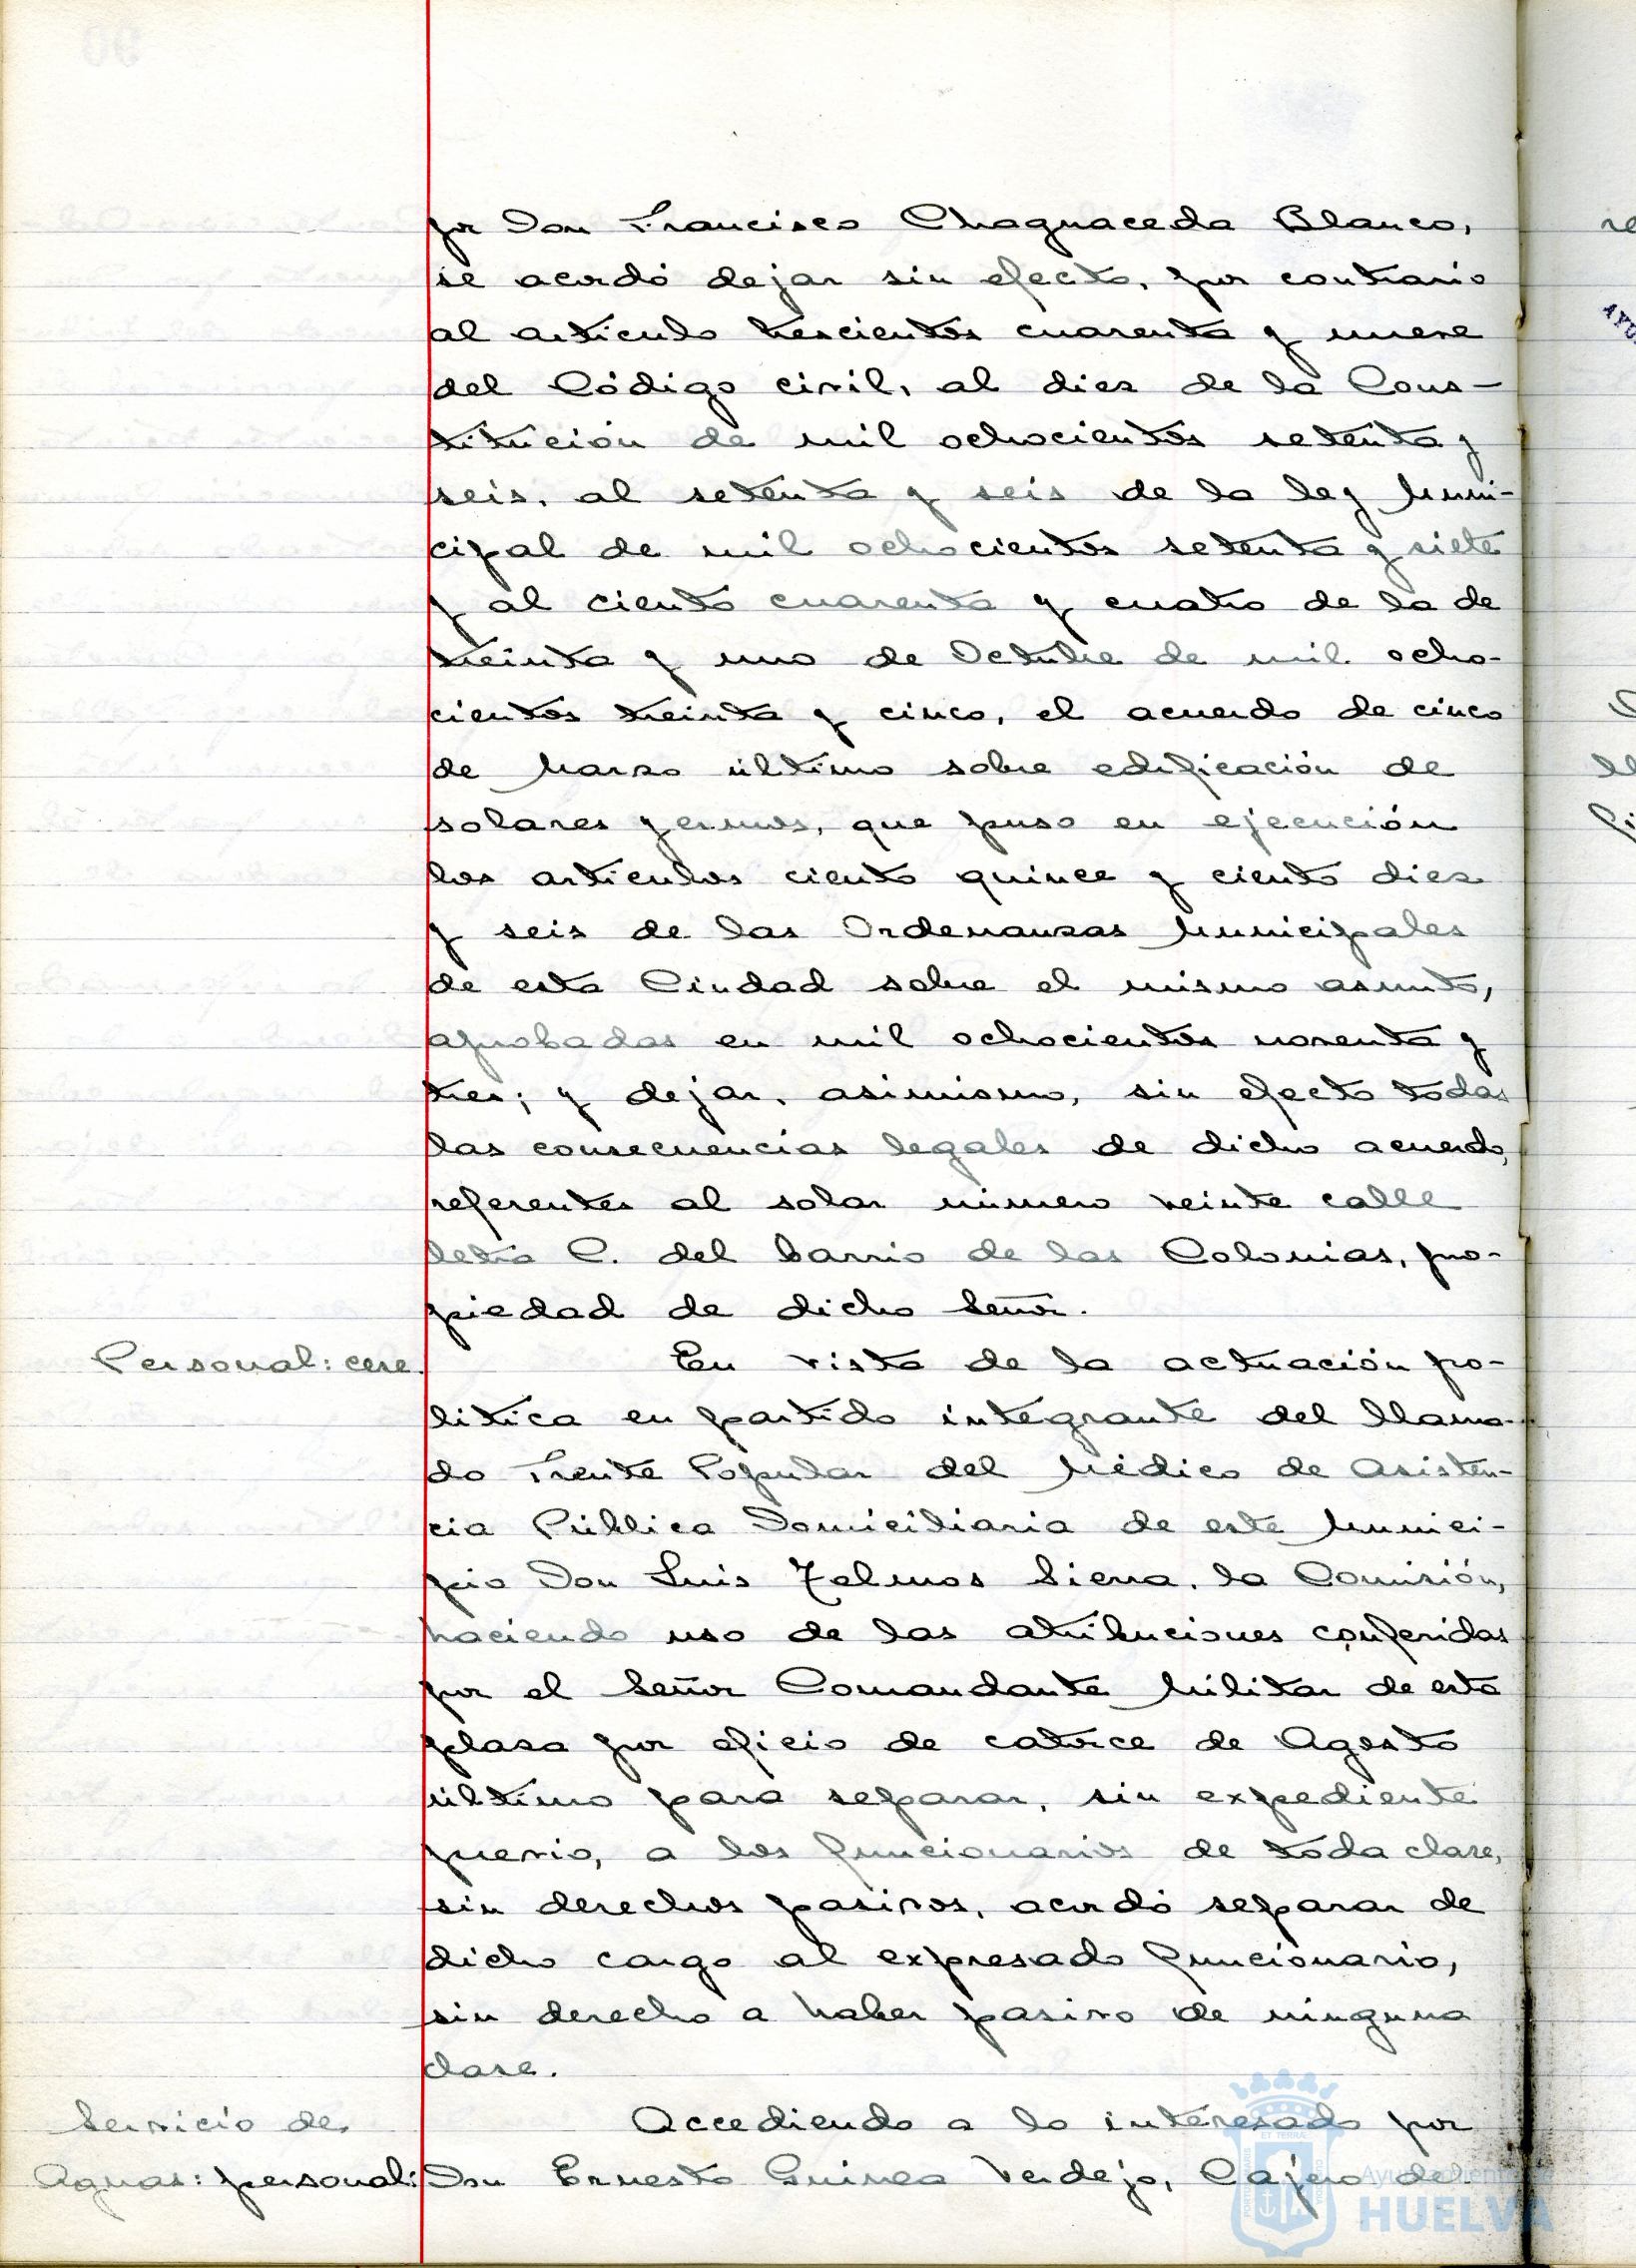 por Don Francisco Chaguaceda Blanco,
se acordó dejar sin efecto, por contrario
al artículo trescientos cuarenta y nueve
del Código civil, al diez de la Cons-
titución de mil ochocientos setenta y
seis, al setenta y seis de la ley Muni-
cipal de mil ochocientos setenta y siete
y al ciento cuarenta y cuatro de la de
treinta y uno de Octubre de mil ocho-
cientos treinta y cinco, el acuerdo de cinco
de Marzo último sobre edificación de
solares yermos, que puso en ejecución
los artículos ciento quince y ciento diez
y seis de las Ordenanzas Municipales
de esta Ciudad sobre el mismo asunto,
aprobadas en mil ochocientos noventa y
tres; y dejar, asimismo, sin efecto todas
las consecuencias legales de dicho acuerdo,
referentes al solar número veinte calle
letra C. del barrio de las Colonias, pro-
piedad de dicho Señor.
Personal: cese.
En vista de la actuación po-
lítica en partido integrante del llama-
do Frente Popular del Médico de Asisten-
cia Pública Domiciliaria de este Munici-
pio Don Luis Zalmos Sierra, la Comisión,
haciendo uso de las atribuciones conferidas
por el Señor Comandante Militar de esta
plaza por oficio de catorce de Agosto
último para separar, sin expediente
previo, a los funcionarios de toda clase,
sin derechos pasivos, acordó separar de
dicho cargo al expresado funcionario,
sin derecho a haber pasivo de ninguna
clase.
Servicio de
Aguas: personal:
Accediendo a lo interesado por
Don Ernesto Guinea Verdejo, Cajero del
Ayuntamiento de
HUELVA